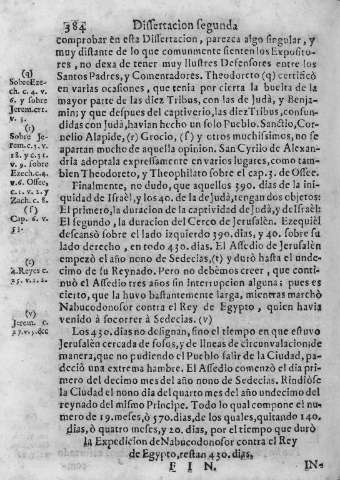 384 Dissertacion segunda
comprobar en esta Dissertacion, parezca algo singular, y
muy distante de lo que comunmente sienten los Exposito-
res, no dexa de tener muy Ilustres Defensores entre los
Santos Padres, y Comentadores. Theodoreto (q) certificò
en varias ocasiones, que tenia por cierta la buelta de la
mayor parte de las diez Tribus, con las de Judà, y Benja-
min; y que despues del captiverio, las diez Tribus, confun-
didas con Judà, havian hecho un solo Pueblo. Sanctio, Cor-
nelio Alapide, (r) Grocio, (s) y otros muchissimos, no se
apartan mucho de aquella opinion. San Cyrilo de Alexan-
dria adoptala expressamente en varios lugares, como tam-
bien Theodoreto, y Theophilato sobre el cap. 3. de Ossee.
Finalmente, no dudo, que aquellos 390. dias de la ini-
quidad de Israèl, y los 40. de la de Judà, tengan dos objetos:
El primero, la duracion de la captividad de Judà, y de Israèl:
El segundo, la duracion del Cerco de Jerusalèn. Ezequièl
descansò sobre el lado izquierdo 390. dias, y 40. sobre su
lado derecho, en todo 430. dias. El Assedio de Jerusalèn
empezò el año nono de Sedecias, (t) y durò hasta el unde-
cimo de su Reynado. Pero no debèmos creer, que conti-
nuò el Assedio tres años sin interrupcion alguna; pues es
cierto, que la huvo bastantemente larga, mientras marchò
Nabucodonosor contra el Rey de Egypto, quien havia
venido à socorrer à Sedecias. (v)
Los 430. dias no designan, sino el tiempo en que estuvo
Jerusalèn cercada de fosos, y de lineas de circunvalacion; de
manera, que no pudiendo el Pueblo salir de la Ciudad, pa-
deciò una extrema hambre. El Assedio comenzò el dia pri-
mero del decimo mes del año nono de Sedecias. Rindiòse
la Ciudad el nono dia del quarto mes del año undecimo del
reynado del mismo Principe. Todo lo qual compone el nu-
mero de 19. meses, ò 570. dias, de los quales, quitando 140.
dias, ò quatro meses, y 20. dias, por el tiempo que durò
la Expedicion de Nabucodonosor contra el Rey
de Egypto, restan 430. dias.
F I N.
IN-
(q)
Sobre Eze-
ch. c. 4. v.
6. y sobre
Jerem. c. 1.
v. 3.
(r)
Sobre Je-
rem. c. 3. v.
18. y c. 31.
v. 9. sobre
Ezech. c. 4.
v. 6. Ossee,
c. 1. v. 2. y
Zach. c. 8.
(s)
Cap. 6. v.
(t)
4. Reyes c.
25. v. 1. 2.
(v)
Jerem. c.
37. v. 5. &c